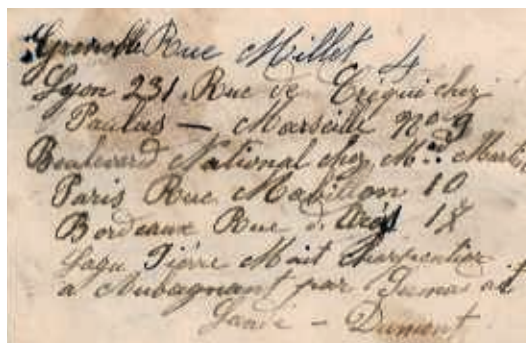 Grenoble Rue Millet 4
Lyon 231. Rue de Créqui chez
Paulus — Marseille No 9
Boulevard National chez Md
Paris Rue Mabillon 10
Bordeaux Rue d. 18
Pierre charpentier
a par
— Dumont